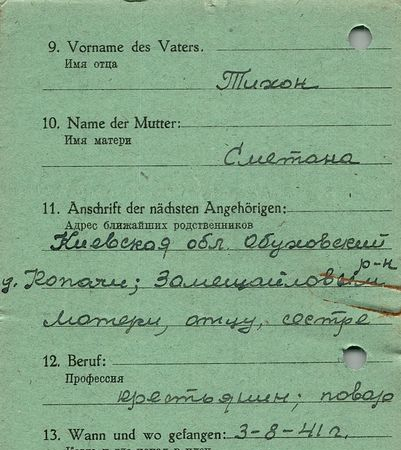 9. Vorname des Vaters.
Имя отца
Тихон
10. Name der Mutter:
Имя матери
Сметана
11. Anschrift der nächsten Angehörigen:
Адрес ближайших родственников
Киевская обл. Обуховский
р-н
д. Копачи; Замещайловым
матери, отцу, сестре
12. Beruf:
Профессия
крестьянин; повар
13. Wann und wo gefangen: 3-8-41 г.